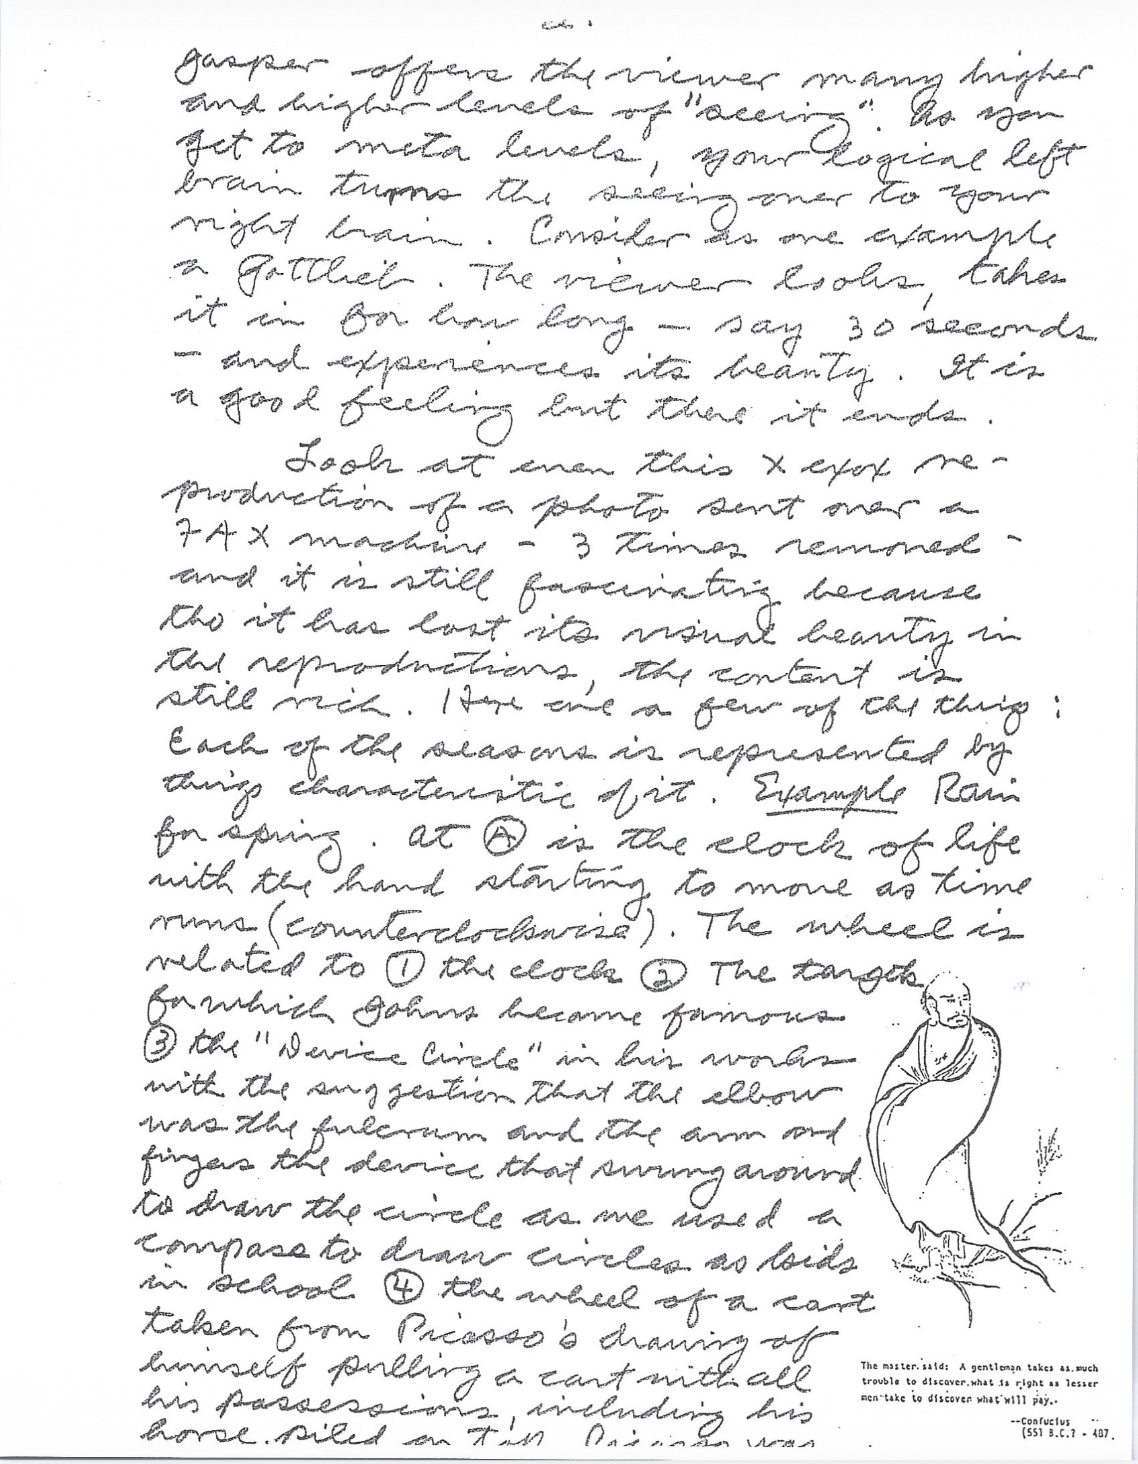 gasper offers the viewer many higher
and higher levels of "seeing". As you
get to meta levels, your logical left
brain turns the seeing over to your
right brain. Consider as one example
a Gottlieb. The viewer looks, takes
it in for how long — say 30 seconds
— and experiences its beauty. It is
a good feeling but there it ends.
Look at even this Xerox re-
production of a photo sent over a
FAX machine - 3 times removed -
and it is still fascinating because
tho it has lost its visual beauty in
the reproductions, the content is
still rich. Here are a few of the things:
Each of the seasons is represented by
things characteristic of it. Example Rain
for spring. At Ⓐ is the clock of life
with the hand starting to move as time
runs (counterclockwise). The wheel is
related to ① the clock ② The targets
for which Johns became famous
③ the "Device Circle" in his works
with the suggestion that the elbow
was the fulcrum and the arm and
fingers the device that swung around
to draw the circle as we used a
compass to draw circles as kids
in school ④ the wheel of a cart
taken from Picasso's drawing of
himself pulling a cart with all
his possessions, including his
horse. Piled on Picasso was
The master said: A gentleman takes as much
trouble to discover what is right as lesser
men take to discover what will pay.
--Confucius
(551 B.C.? - 407